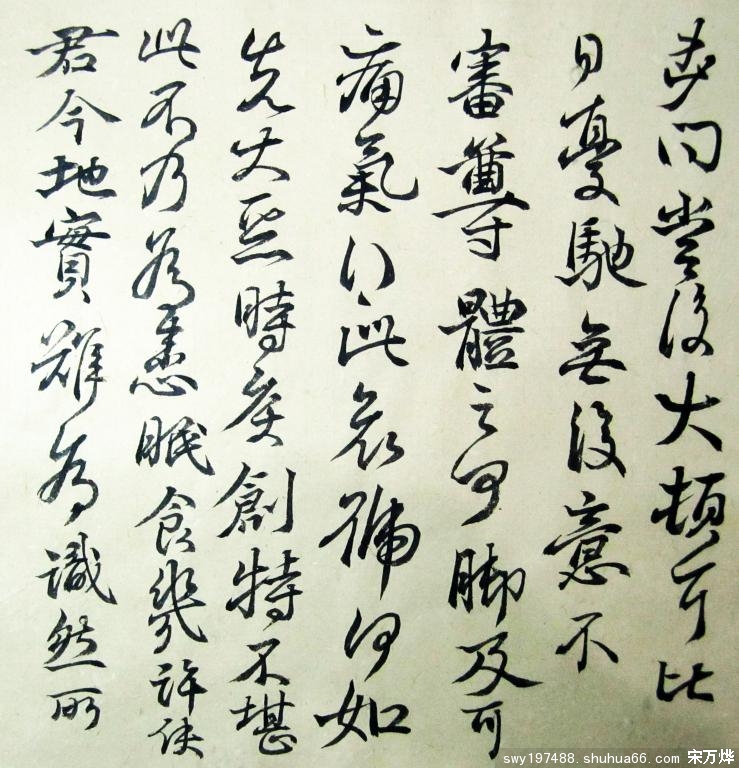 問復大頓可比
日憂馳無復意不
審尊體云何腳及可
痛氣行此哀何如
先惡時創特不堪
此不乃為患眠食幾許使
君今地實難為識然所
swy197488.shuhua66.com 宋万烨